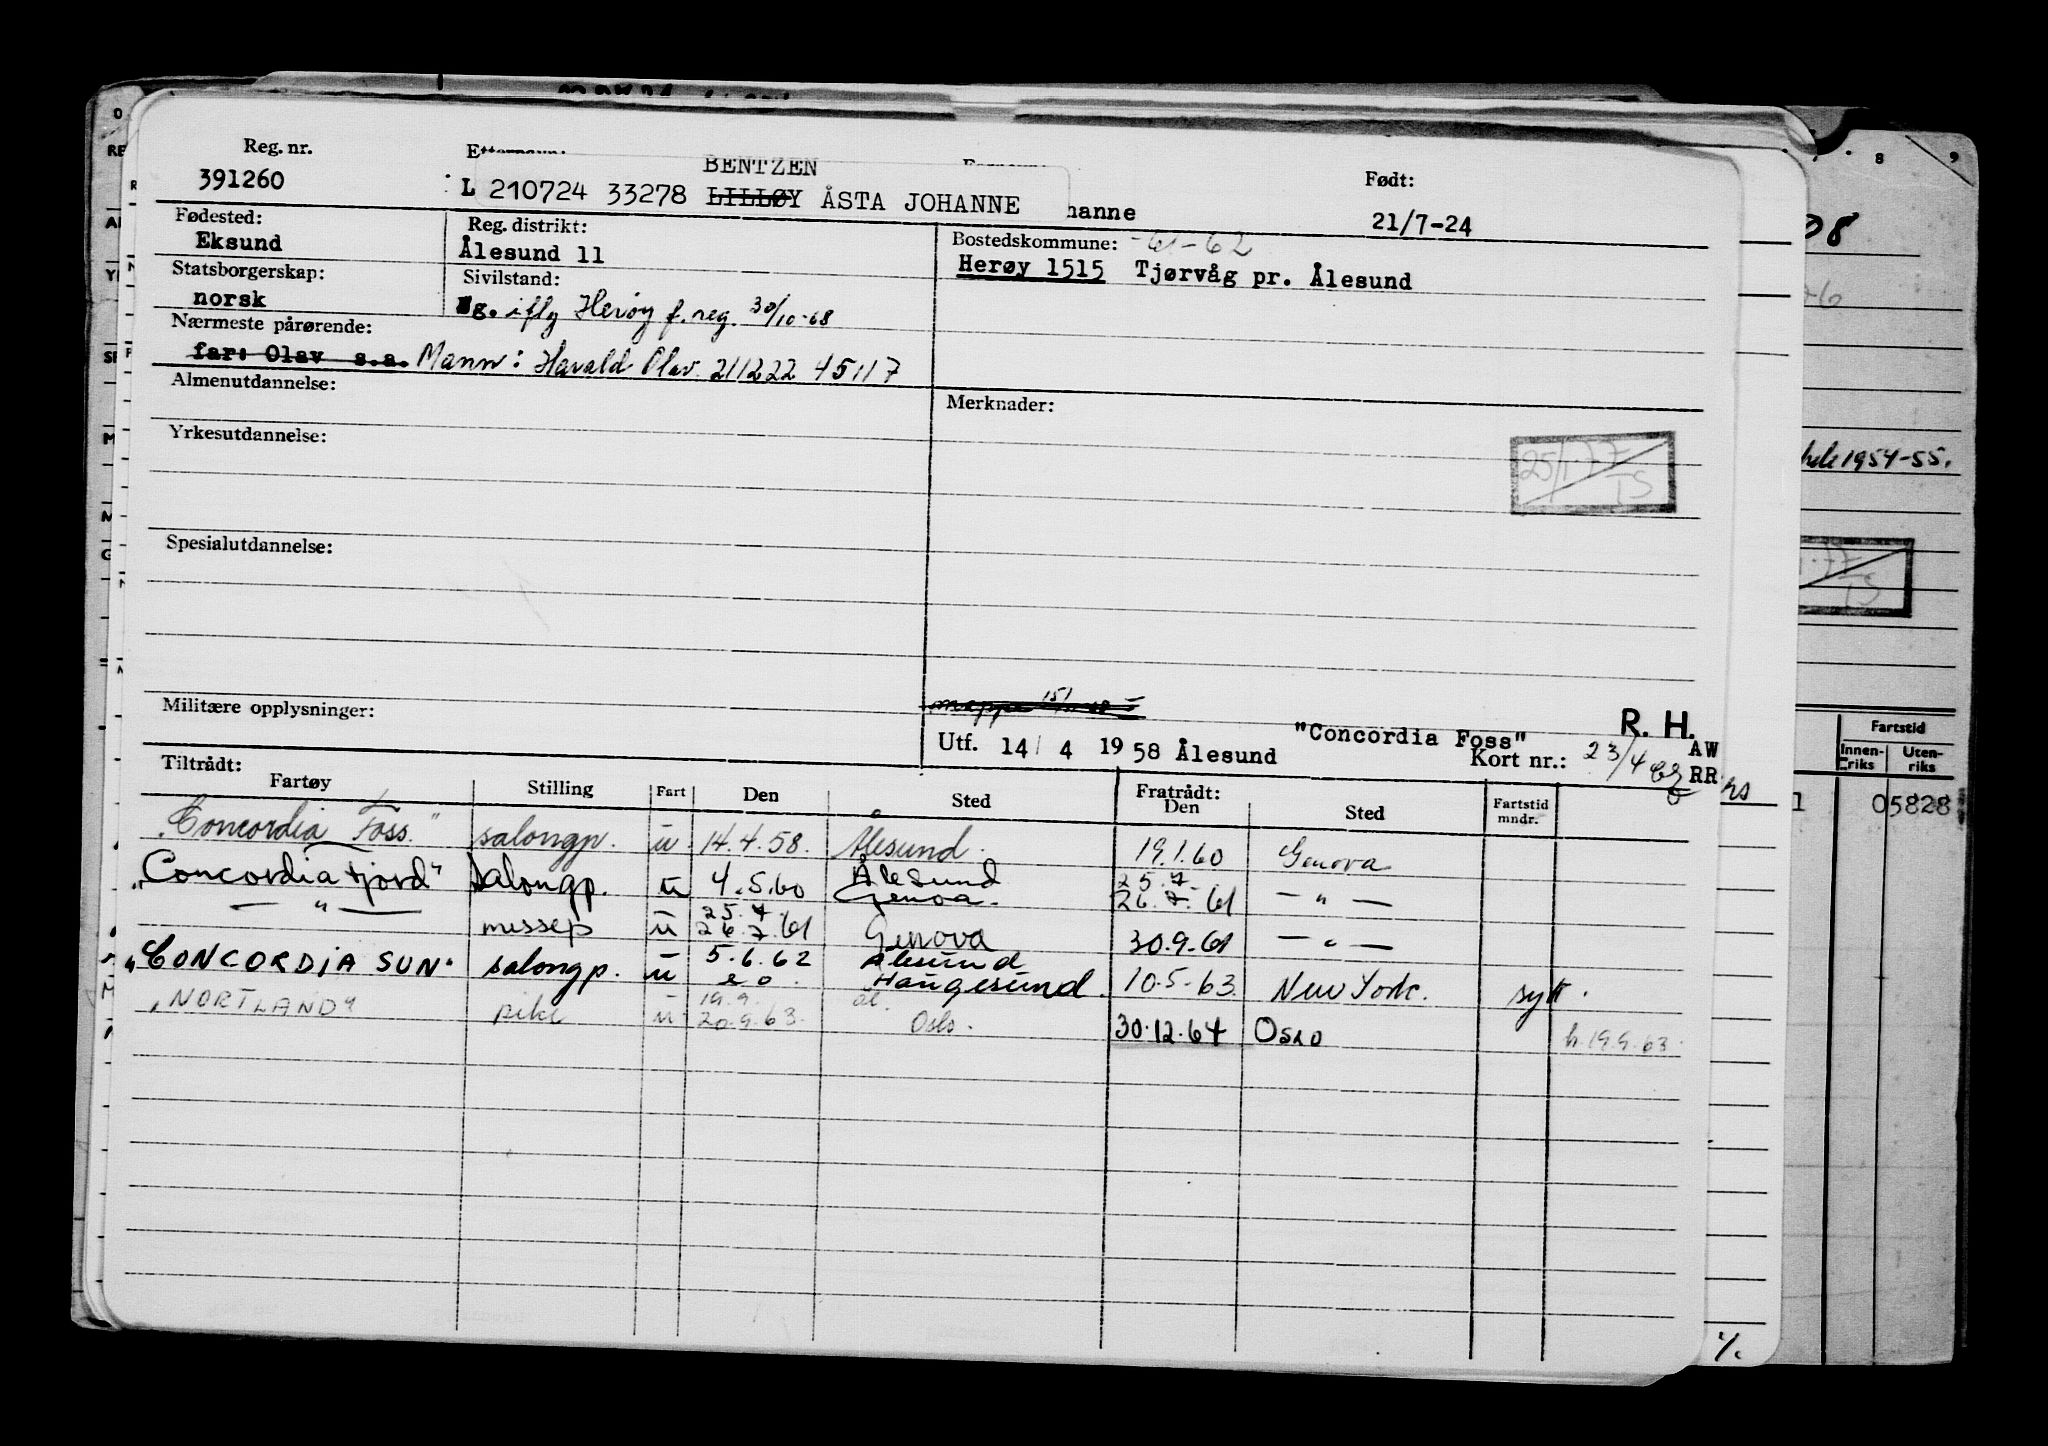 Reg. nr.
391260
BENTZEN
L 210724 33278 LILLØY ÅSTA JOHANNE
hanne
Født:
21/7-24
Fødested:
Eksund
Reg. distrikt:
Ålesund 11
Bostedskommune: -61-62
Herøy 1515 Tjørvåg pr. Ålesund
Statsborgerskap:
norsk
Sivilstand:
g. iflg Herøy f.reg. 30/10-68
Nærmeste pårørende:
far: Olav s.a. Mann: Harald Olav 211222 45117
Almenutdannelse:
Merknader:
Yrkesutdannelse:
25/1-77
IS
Spesialutdannelse:
Militære opplysninger:
mappe
Utf. 14/ 4 1958 Ålesund
"Concordia Foss"
R. H.
Kort nr.: 23/4
AW
RR
Tiltrådt:
Fartøy Stilling Fart Den Sted Fratrådt: Den Sted Fartstid mndr.
"Concordia Foss" salongp. u. 14.4.58. Ålesund. 19.1.60 Genova
"Concordiafjord" Salongp. u 4.5.60 Ålesund Genoa. 25.7. 26.7.61 — " —
— " — messep u 25.7 26.7.61 Genova 30.9.61 — " —
"CONCORDIA SUN" salongp. u 5.6.62 Ålesund Haugesund. 10.5-63. New York. sytt.
"NORTLAND" pike u 19.9. 20.9.63. ål. Oslo. 30.12.64 OSLO h. 19.9.63.
8 9
08
hele 1954-55.
Fartstid
Innenriks Utenriks
1 05828